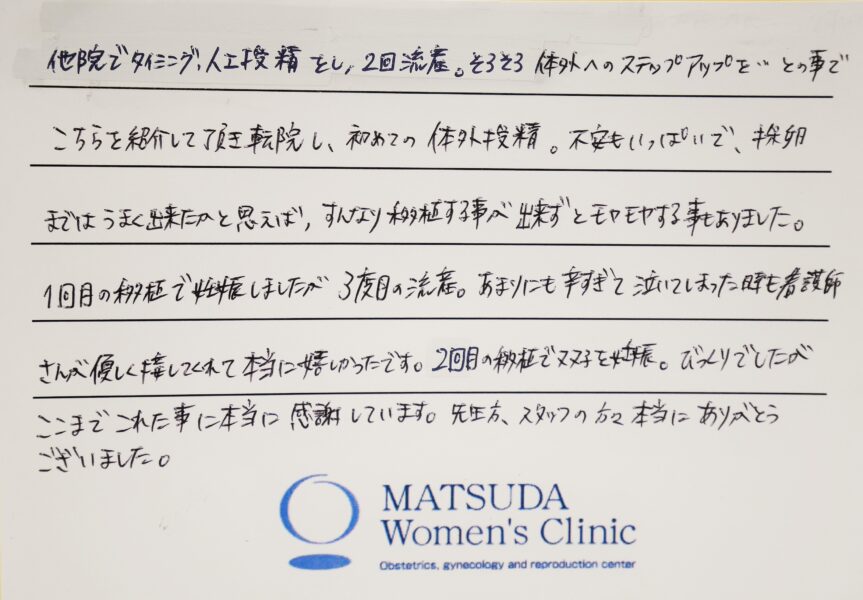 他院でタイミング、人工授精をし、2回流産。そろそろ体外へのステップアップを…との事で
こちらを紹介して頂き転院し、初めての体外授精。不安もいっぱいで、採卵
まではうまく出来たかと思えば、すんなり移植する事が出来ずとモヤモヤする事もありました。
1回目の移植で妊娠しましたが3度目の流産。あまりにも辛すぎて泣いてしまった時も看護師
さんが優しく接してくれて本当に嬉しかったです。2回目の移植で双子を妊娠。びっくりでしたが
ここまでこれた事に本当に感謝しています。先生方、スタッフの方々本当にありがとう
ございました。
MATSUDA
Women's Clinic
Obstetrics, gynecology and reproduction center